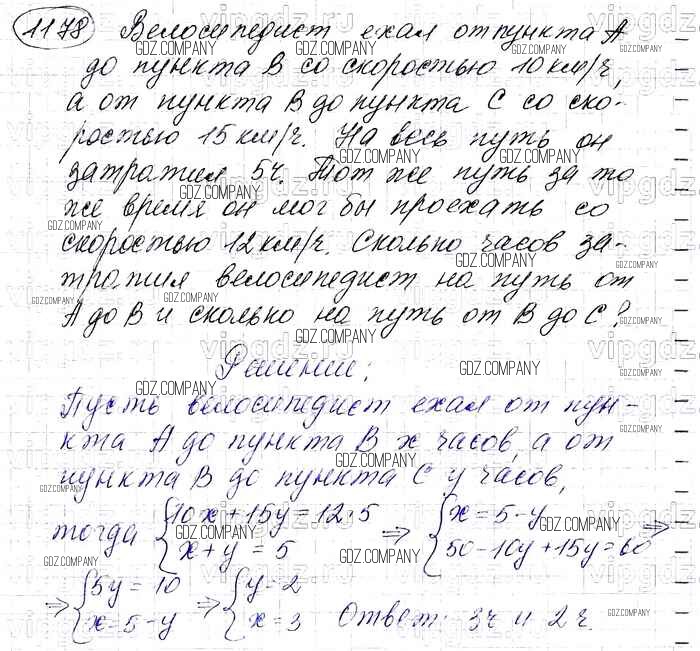 1178 Велосипедист ехал от пункта А
до пункта В со скоростью 10 км/ч,
а от пункта В до пункта С со ско-
ростью 15 км/ч. На весь путь он
затратил 5ч. Тот же путь за то
же время он мог бы проехать со
скоростью 12 км/ч. Сколько часов за-
тратил велосипедист на путь от
А до В и сколько на путь от В до С?
Решение:
Пусть велосипедист ехал от пун-
кта А до пункта В х часов, а от
пункта В до пункта С у часов,
тогда { 10х + 15у = 12·5 ⇒ { х = 5 - у ⇒
х + у = 5 50 - 10у + 15у = 60
⇒ { 5у = 10 ⇒ { у = 2
х = 5 - у х = 3 Ответ: 3ч и 2ч.
GDZ.COMPANY
vipgdz.ru